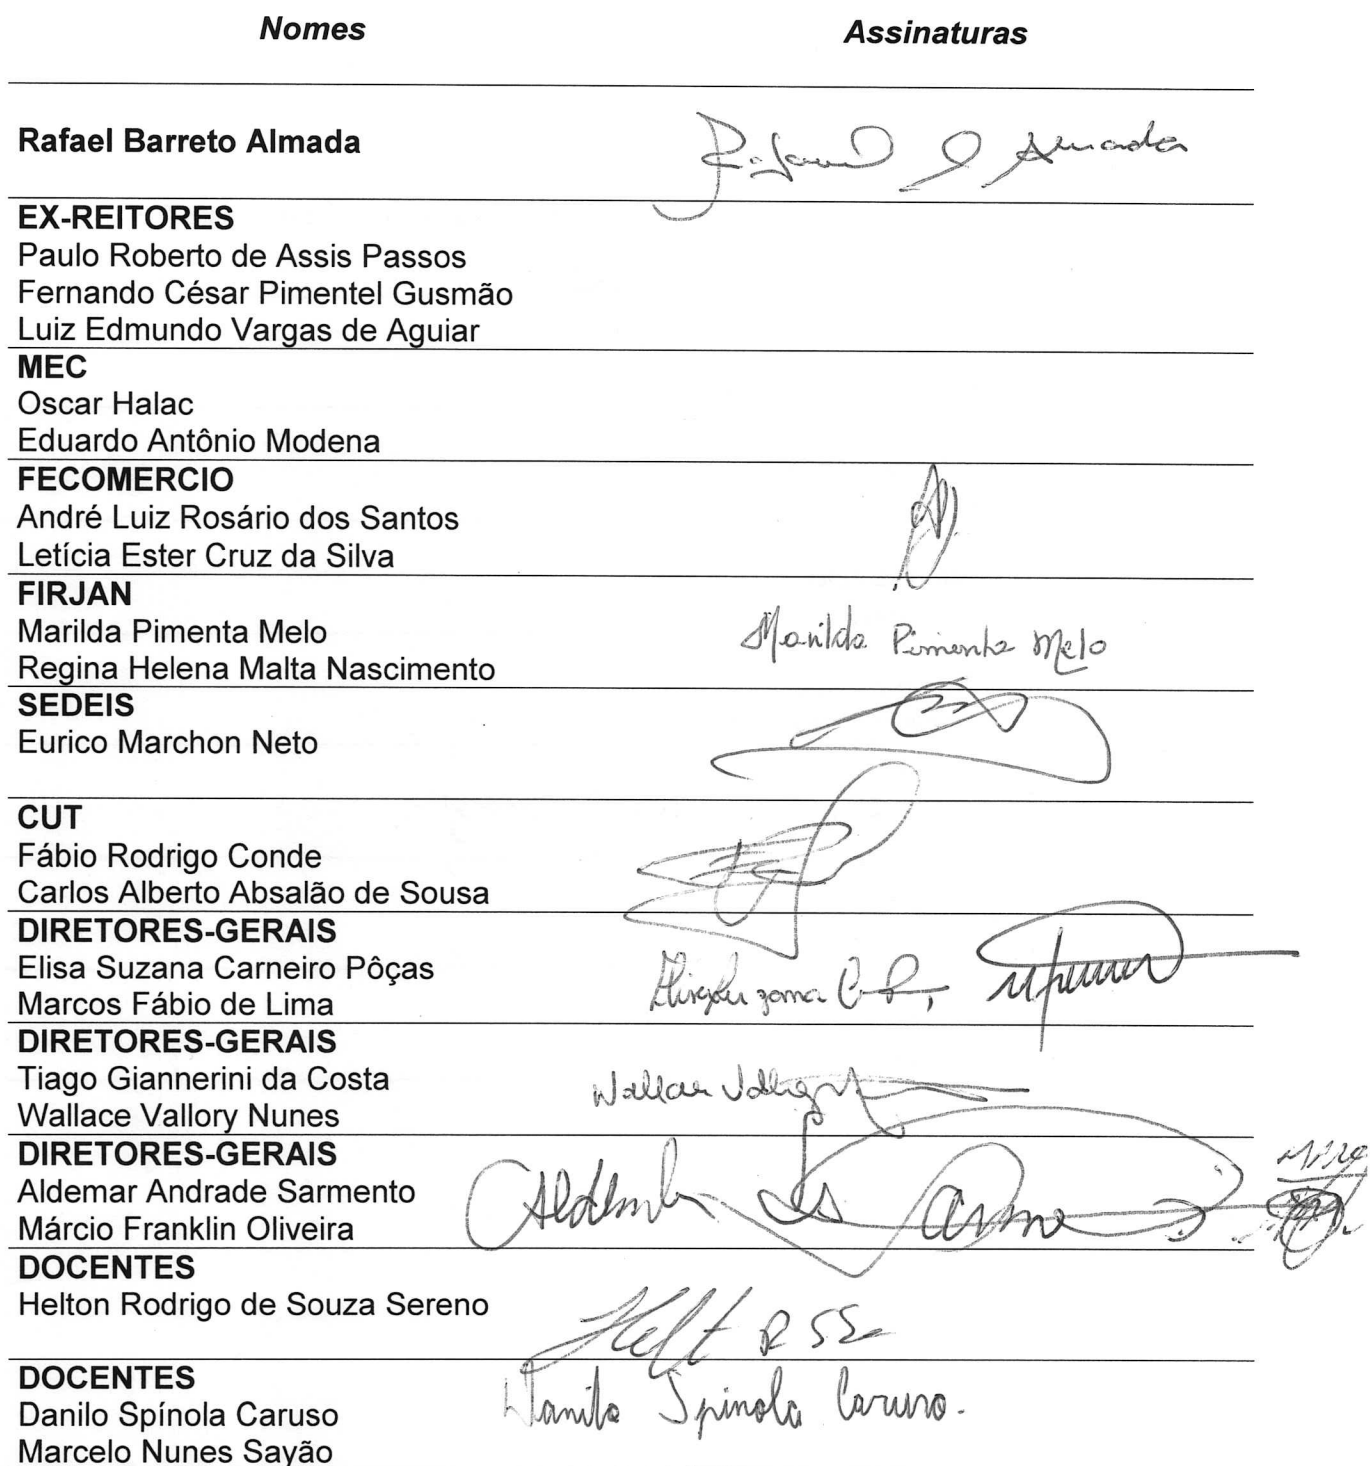 Nomes Assinaturas
Rafael Barreto Almada
Rafael Almada
EX-REITORES
Paulo Roberto de Assis Passos
Fernando César Pimentel Gusmão
Luiz Edmundo Vargas de Aguiar
MEC
Oscar Halac
Eduardo Antônio Modena
FECOMERCIO
André Luiz Rosário dos Santos
Letícia Ester Cruz da Silva
FIRJAN
Marilda Pimenta Melo
Marilda Pimenta Melo
Regina Helena Malta Nascimento
SEDEIS
Eurico Marchon Neto
CUT
Fábio Rodrigo Conde
Carlos Alberto Absalão de Sousa
DIRETORES-GERAIS
Elisa Suzana Carneiro Pôças
Marcos Fábio de Lima
DIRETORES-GERAIS
Tiago Giannerini da Costa
Wallace Vallory Nunes
DIRETORES-GERAIS
Aldemar Andrade Sarmento
Márcio Franklin Oliveira
DOCENTES
Helton Rodrigo de Souza Sereno
DOCENTES
Danilo Spínola Caruso
Danilo Spinola Caruso.
Marcelo Nunes Sayão